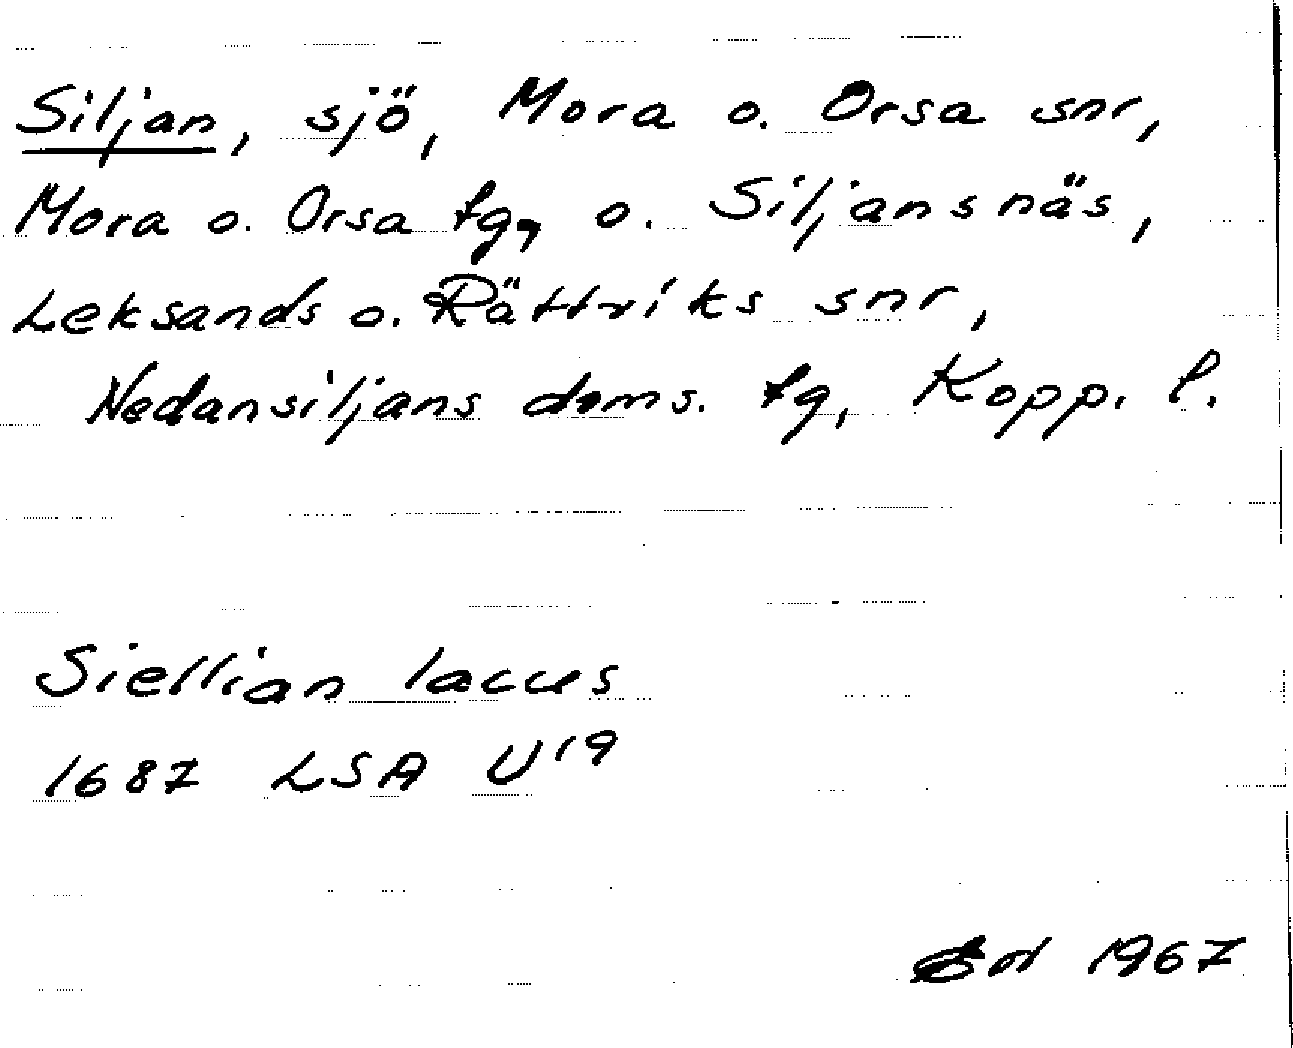 Siljan, sjö, Mora o. Orsa snr,
Mora o. Orsa tg, o. Siljansnäs,
Leksands o. Rättviks snr,
Nedansiljans doms. tg, Kopp. l.
Siellian laccus
1687 LSA U19
1967